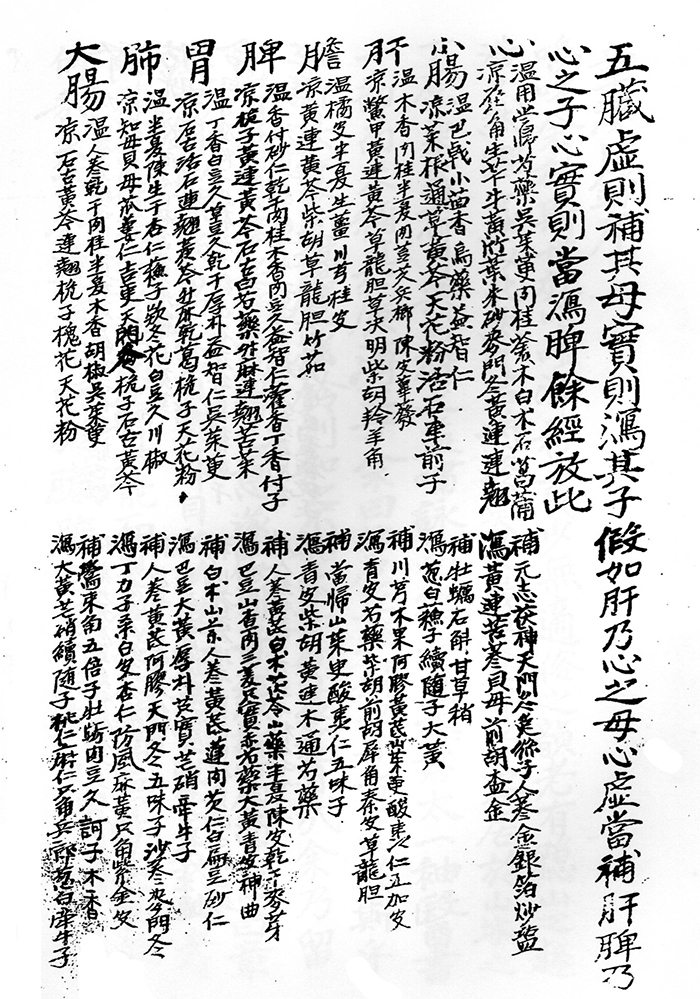 五臟虛則補其母實則瀉其子假如肝乃心之母心虛當補肝脾乃
心之子心實則當瀉脾餘經放此
心
温用当歸芍藥吳茱萸肉桂蒼木白木石菖蒲
凉犀角生芐牛黃竹葉朱砂麥門冬黃連連翹
補元志茯神天門冬兔絲子人參金銀箔炒鹽
瀉黃連苦參貝母前胡
小腸
温巴戟小茴香烏藥益智仁
凉茅根通草黃芩天花粉活石車前子
補牡蠣石斛甘草稍
瀉葱白蘓子續随子大黃
肝
温木香肉桂半夏肉豆久兵榔陳皮蓽發
凉鱉甲黃連黃芩草龍胆草決明柴胡羚羊角
補川芎木果阿膠黃芪山茱萸酸棗仁五加皮
瀉青皮芍藥柴胡前胡犀角秦皮草龍胆
膽
温橘皮半夏生薑川芎桂皮
凉黃連黃芩柴胡草龍胆竹茹
補當歸山茱萸酸棗仁五味子
瀉青皮柴胡黃連木通芍藥
脾
温香付砂仁乾干肉桂木香肉豆久益智仁藿香丁香付子
凉梔子黃連黃芩石古白芍藥升麻連翹苦茱
補人參黃芪白木茯苓山藥半夏陳皮乾干麥芽
瀉巴豆山查肉三棱只實赤芍藥大黃青皮神曲
胃
温丁香白豆久草豆久乾干厚朴益智仁吳茱萸
凉石古活石連翹黃芩升麻乾葛梔子天花粉
補白木山藥人參黃芪蓮肉芡仁白扁豆砂仁
瀉巴豆大黃厚朴只實芒硝牽牛子
肺
温半夏陳生干杏仁蘓子款冬花白豆久川椒
凉知母貝母瓜蔞仁吉更天門冬梔子石古黃芩
補人參黃芪阿膠天門冬五味子沙參麥門冬
瀉丁力子桑白皮杏仁防風麻黃只角紫金皮
大腸
温人參乾干肉桂半夏木香胡椒吳茱萸
凉石古黃芩連翹梔子槐花天花粉
補罂束角五倍子牡蛎肉豆久訶子木香
瀉大黃芒硝續随子桃仁麻仁只角兵郎葱白牽牛子